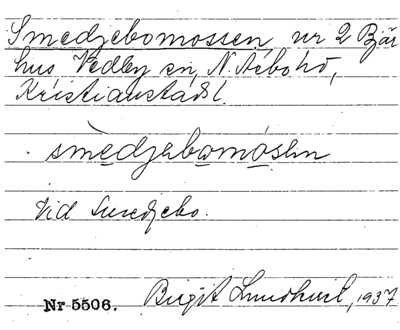 Smedjebomossen, nr 2 Bjär
hus Vedby sn, N. Åsbo hd,
Kristianstads l.
smèdjabωmósen
Vid Smedjebo.
Nr 5506. Birgit Lundkvist, 1937